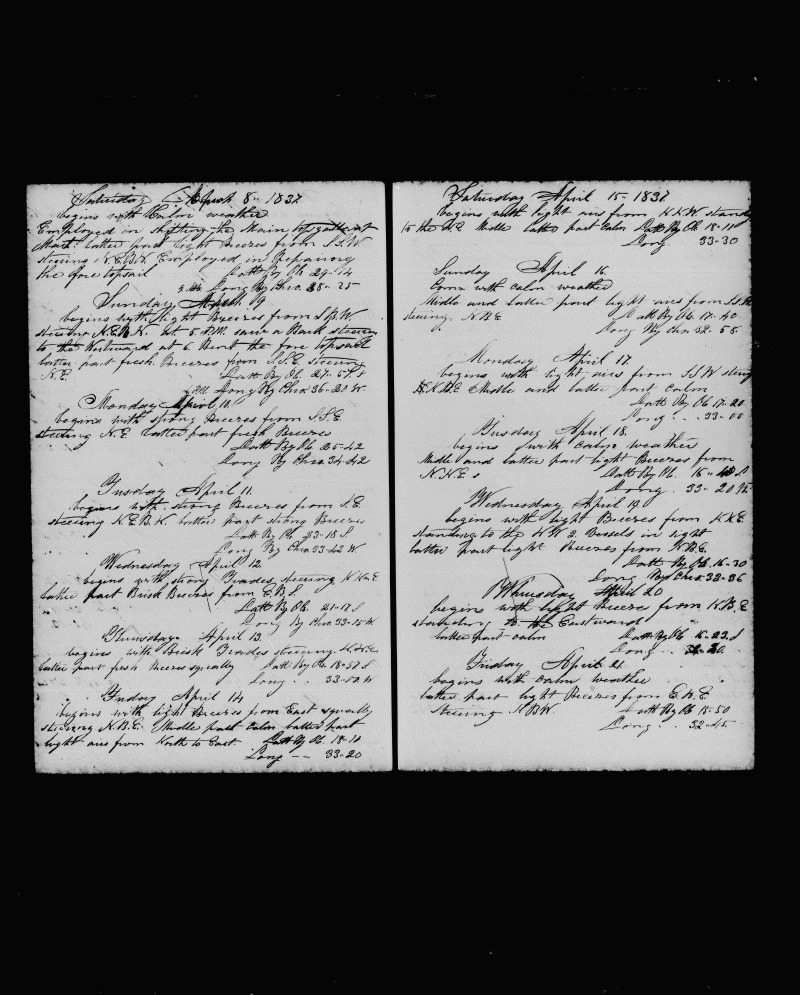 Saturday April 8 - 1837
begins with Calm weather
Employed in shifting the Main topgallant
Mast. latter part light Breezes from S.S.W
steering N.E.B.N. Employed in Repairing
the fore topsail Latt By Ob. 29-14
Long By Chro 38-25
Sunday April 9
begins with light Breezes from S.B.W
steering N.E.B.N. at 5 P.M. saw a Bark steering
to the Westward at 6 Bent the fore topsail
latter part fresh Breezes from S.S.E. steering
N.E. Latt By Ob. 27-57 S
Long By Chro 36-20 W
Monday April 10
begins with strong Breezes from S.S.E.
steering N.E. latter part fresh Breezes
Latt By Ob. 25-42
Long By Chro 34-42
Tusday April 11.
begins with strong Breezes from S.E.
steering N.E.B.N. latter part strong Breezes
Latt By Ob 23-18 S
Long By Chro 33-42 W
Wednesday April 12
begins with strong Trades steering N.N.E
latter part Brisk Breezes from E.B.S.
Latt By Ob. 21-17 S
Long By Chro 33-15 W
Thursday April 13
begins with Brisk Trades steering N.N.E
latter part fresh Breezes squally Latt By Ob 18-57 S
Long .. 33-50 W
Friday April 14
begins with light Breezes from East squally
steering N.B.E. Middle part Calm latter part
light airs from North to East. Latt By Ob. 18-10
Long -- 33-20
Saturday April 15 - 1837
begins with light airs from N.N.W stand
to the N.E Middle latter part Calm Latt By Ob 18-11
Long 33-30
Sunday April 16
Come with calm weather
Middle and Latter part light airs from S.S.W
steering N.B.E Latt By Ob. 17-40
Long By Chro 32-58
Monday April 17
begins with light airs from S.S.W steering
N.N.E Middle and latter part calm
Latt By Ob 17-20
Long .. 33-00
Tusday April 18.
begins with calm weather
Middle and latter part light Breezes from
N.N.E Latt By Ob. 16-40 S
Long. 33-20 W
Wednesday April 19
begins with light Breezes from N.N.E.
standing to the N.W 2 Vessels in sight
latter part light Breezes from N.B.E.
Latt By Ob. 16-30
Long By Chro 32-36
Thursday April 20
begins with light Breeze from N.B.E
standing to the Eastward
latter part calm Latt By Ob 16-23 S
Long. 32-30
Friday April 21
begins with calm weather
latter part light Breezes from E.B.E.
steering N.B.W Latt By Ob 15-50
Long .. 32-45